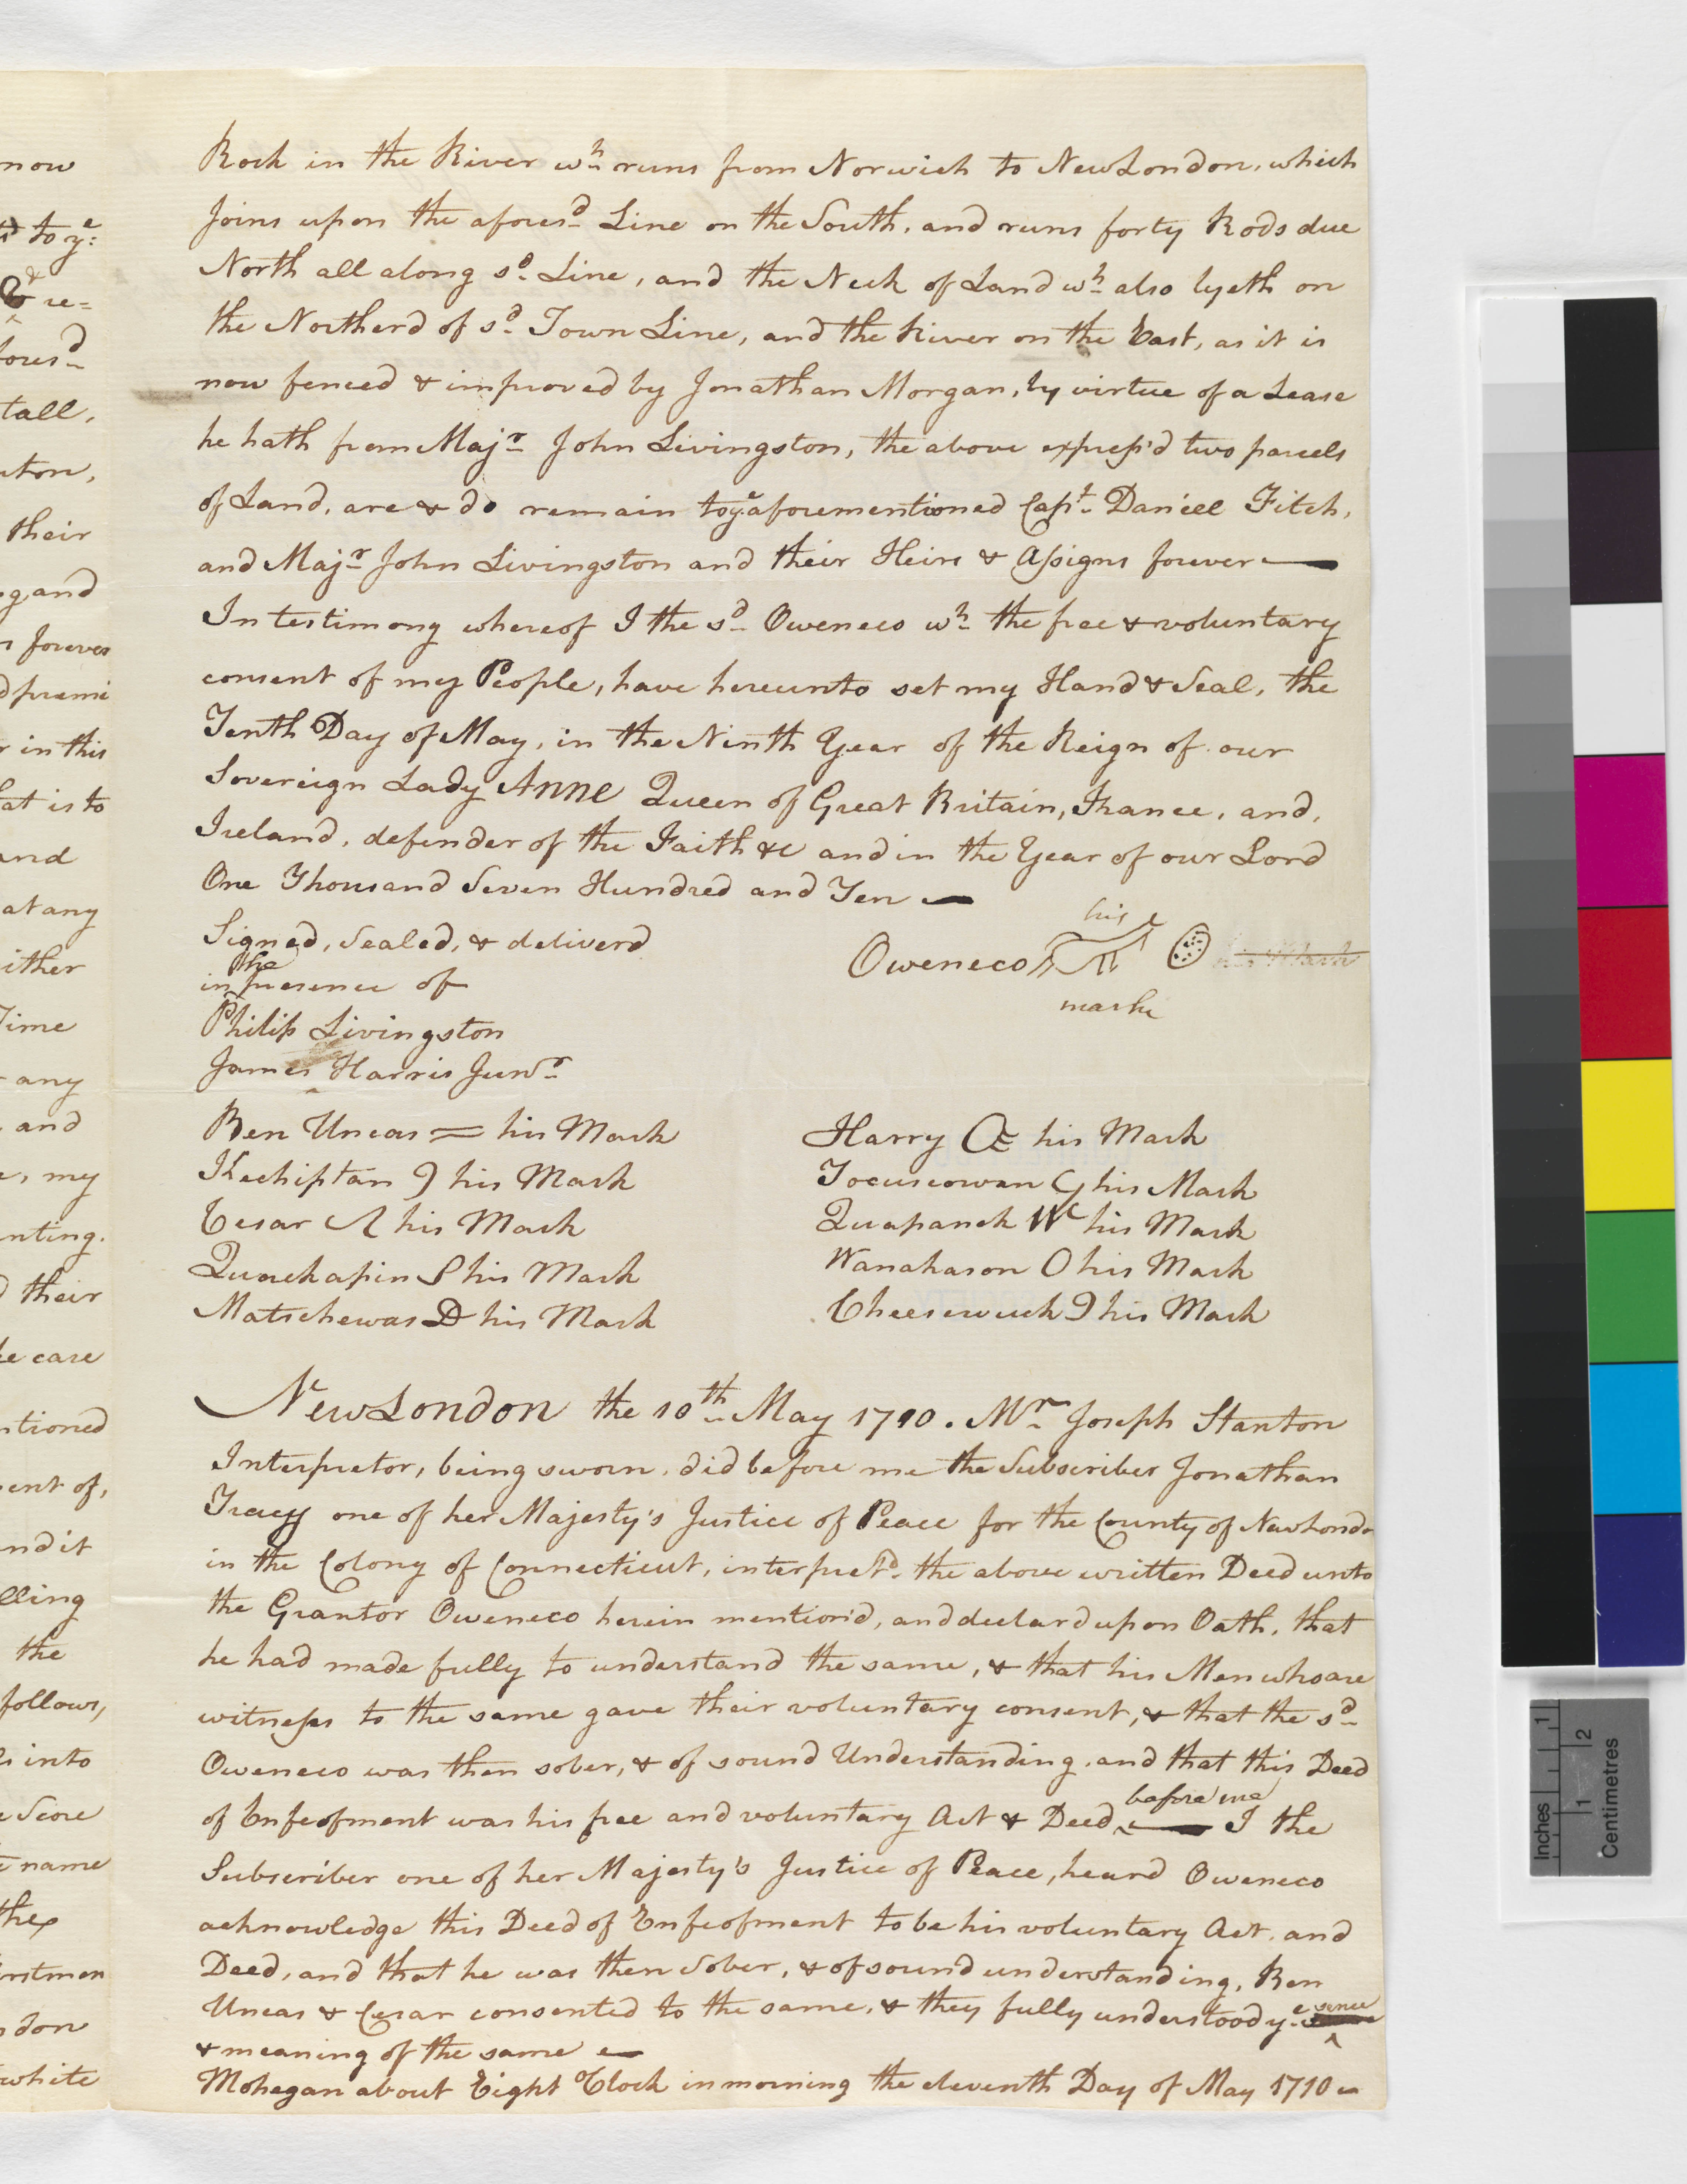 now
to yᵉ:
&
& re=
foresᵈ
tall,
uton,
their
g and
forever
premi
r in this
at is to
and
at any
ither
Time
any
and
, my
nting.
their
e care
ntioned
ent of,
nd it
lling
the
follows,
into
Score
name
the
don
white
Rock in the River wʰ runs from Norwich to New London, which
Joins upon the aforesᵈ Line on the South, and runs forty Rods due
North all along sᵈ Line, and the Neck of Land wʰ also lyeth on
the Northerd of sᵈ Town Line, and the River on the East, as it is
now fenced & improved by Jonathan Morgan, by virtue of a Lease
he hath from Majʳ John Livingston, the above express'd two parcels
of Land, are & do remain to yᵉ aforementioned Capᵗ Daniel Fitch,
and Majʳ John Livingston and their Heirs & Assigns forever —
In testimony whereof I the sᵈ Oweneco wʰ the free & voluntary
consent of my People, have hereunto set my Hand & Seal, the
Tenth Day of May, in the Ninth Year of the Reign of our
Sovereign Lady ANNE Queen of Great Britain, France, and,
Ireland, defender of the Faith &c and in the Year of our Lord
One Thousand Seven Hundred and Ten —
Signed, Sealed, & deliverd
in the presence of
Philip Livingston
James Harris Junʳ
his
Oweneco his Mark
marke
Ben Uncas = his Mark
Kechiptan his Mark
Cesar his Mark
Quachapin S his Mark
Matschewas D his Mark
Harry his Mark
Tocuscowan his Mark
Quapanck Wc his Mark
Wanahason O his Mark
Cheeseweuk his Mark
New London the 10ᵗʰ May 1710. Mʳ Joseph Stanton
Interpretor, being sworn, did before me the Subscriber Jonathan
Tracy one of her Majesty's Justice of Peace for the County of New Londo
in the Colony of Connecticut, interpretᵈ the above written Deed unto
the Grantor Oweneco herein mention'd, and declard upon Oath, that
he had made fully to understand the same, & that his Men who are
witness to the same gave their voluntary consent, & that the sᵈ
Oweneco was then sober, & of sound Understanding, and that this Deed
of Enfeofment was his free and voluntary Act & Deed, before me — I the
Subscriber one of her Majesty's Justice of Peace, heard Oweneco
acknowledge this Deed of Enfeofment to be his voluntary Act, and
Deed, and that he was then Sober, & of sound understanding, Ben
Uncas & Cesar consented to the same, & they fully understood yᵉ sence
& meaning of the same —
Mohegan about Eight Clock in morning the eleventh Day of May 1710 —